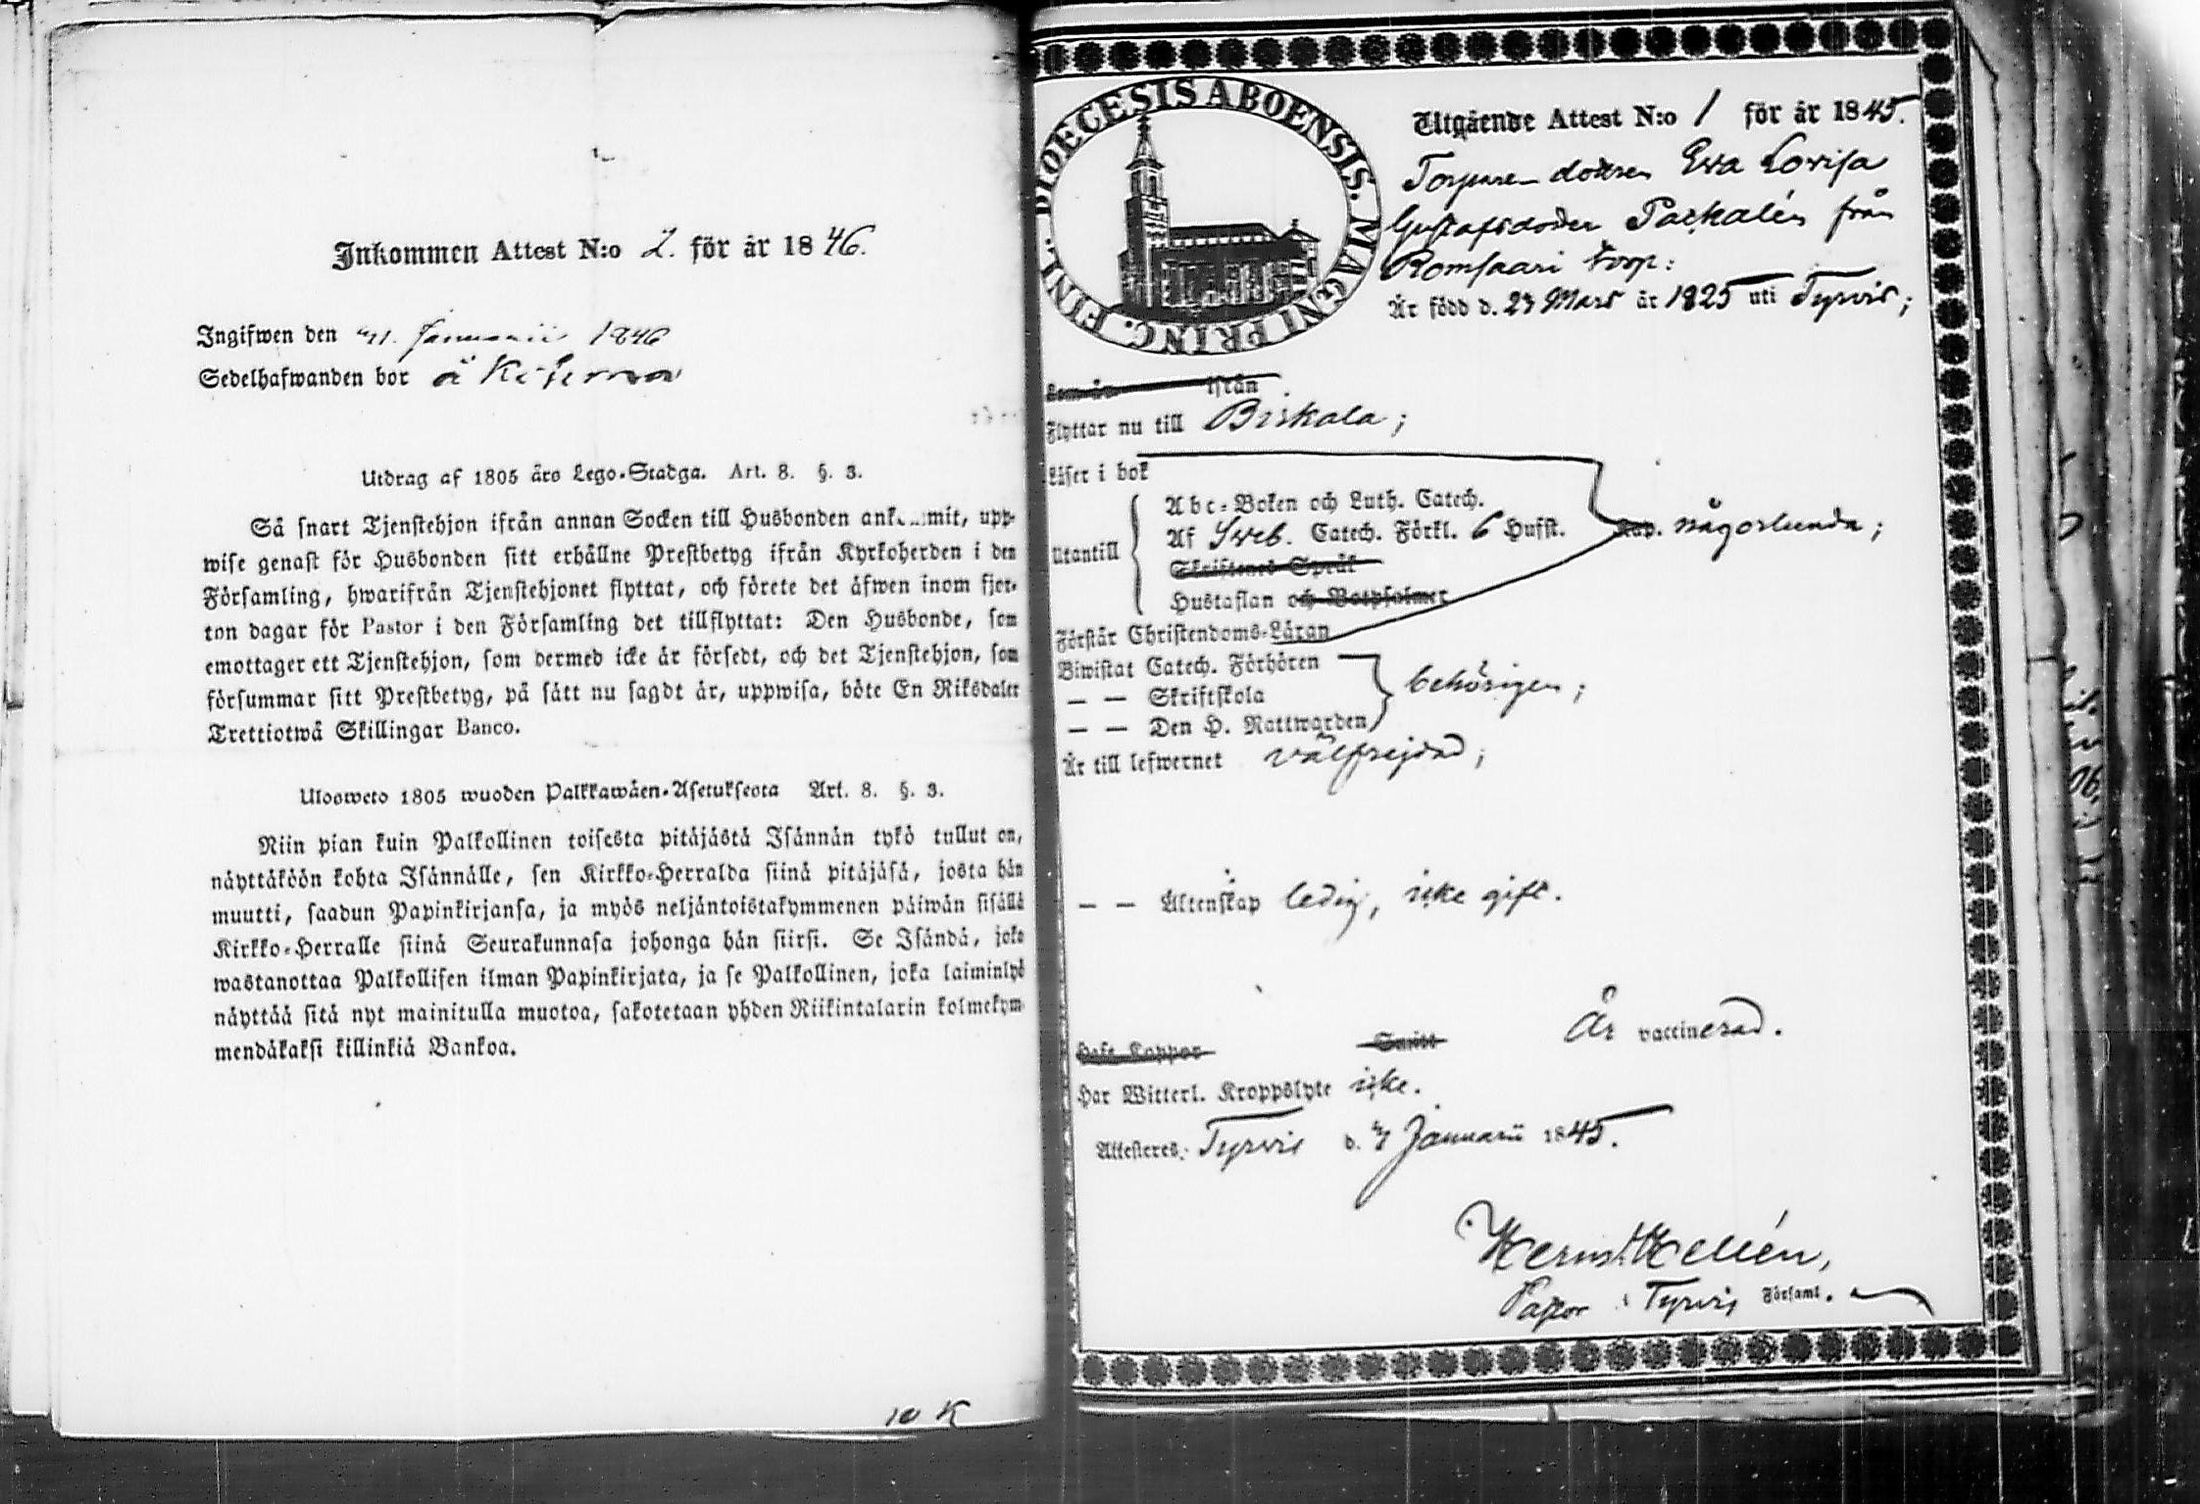 Inkommen Attest N:o 2. för år 1846.
Ingifwen den Januarii 1846
Sedelhafwanden bor å
Utdrag af 1805 års Lego-Stadga. Art. 8. §. 3.
Så snart Tjenstehjon ifrån annan Socken till Husbonden mit, upp-
wise genast för Husbonden sitt erhållne Prestbetyg ifrån Kyrkoherden i den
Församling, hwarifrån Tjenstehjonet flyttat, och förete det äfwen inom fjor-
ton dagar för Pastor i den Församling det tillflyttat: Den Husbonde, som
emottager ett Tjenstehjon, som dermed icke är försedt, och det Tjenstehjon, som
försummar sitt Prestbetyg, på sätt nu sagdt är, uppwisa, böte En Riksdaler
Trettiotwå Skillingar Banco.
Ulosweto 1805 wuoden Palkkawäen-Asetuksesta Art. 8. §. 3.
Niin pian kuin Palkollinen toisesta pitäjästä Isännän tykö tullut on,
näyttäköön kohta Isännälle, sen Kirkko-Herralda siinä pitäjäsä, josta hän
muutti, saadun Papinkirjansa, ja myös neljäntoistakymmenen päiwän sisällä
Kirkko-Herralle siinä Seurakunnasa johonga hän siirsi. Se Isändä, joka
wastanottaa Palkollisen ilman Papinkirjata, ja se Palkollinen, joka laiminlyö
näyttää sitä nyt mainitulla muotoa, sakotetaan yhden Riikintalarin kolmekym
mendäkaksi killinkiä Bankoa.
10 K
DIOECESIS ABOENSIS. MAGNI PRINC. FINL.
Utgående Attest N:o 1 för år 1845.
Ewa Lovisa
Gustafsdotter från
Romsaari torp:
Är född d. 23 Mars år 1825 uti Tyrvis;
ifrån
Flyttar nu till Birkala;
Läser i bok
Abc-Boken och Luth. Catech.
Utantill Af Sveb. Catech. Förkl. 6 Hufst. Kap. någorlunda;
Skriftenes Språk
Hustaflan och Botpsalmer
Förstår Christendoms-Läran
Biwistat Catech. Förhören
— — Skriftskola behörigen;
— — Den H. Nattwarden
Är till lefwernet välfrejdad;
— — Äktenskap ledig, icke gift.
Haft Koppor Smitt Är vaccinerad.
Har Witterl. Kroppslyte icke.
Attesteres: Tyrvis d. Januarii 1845.
Hellén,
Pastor i Tyrvis Församl.